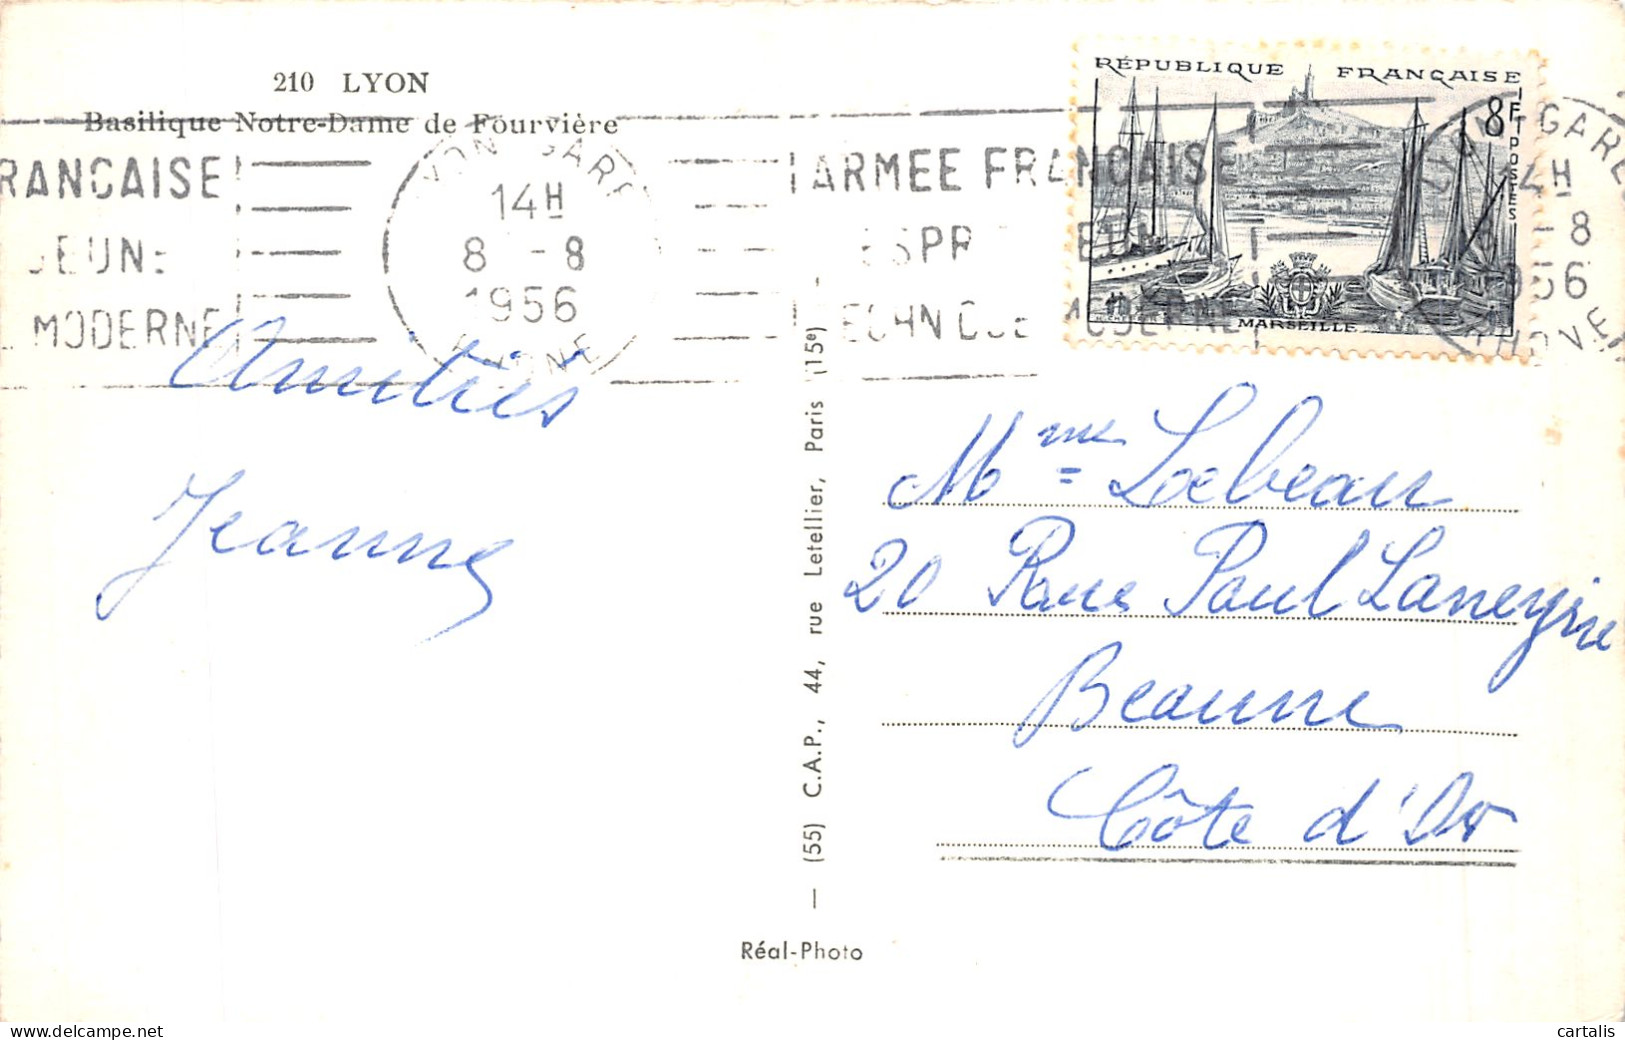 210 LYON
Basilique Notre-Dame de Fourvière
RANÇAISE
JEUNE
MODERNE
LYON GARE
14H
8 -8
1956
RHONE
ARMEE FRANÇAISE
ESPR
TECHNIQUE MODERNE
RÉPUBLIQUE FRANÇAISE
8F
POSTES
MARSEILLE
LYON GARE
14H
8 -8
1956
RHONE
Amitiés
Jeanne
Mme Lebeau
20 Rue Paul Laneyrie
Beaune
Côte d'Or
— (55) C.A.P., 44, rue Letellier, Paris (15e)
Réal-Photo
cartalis